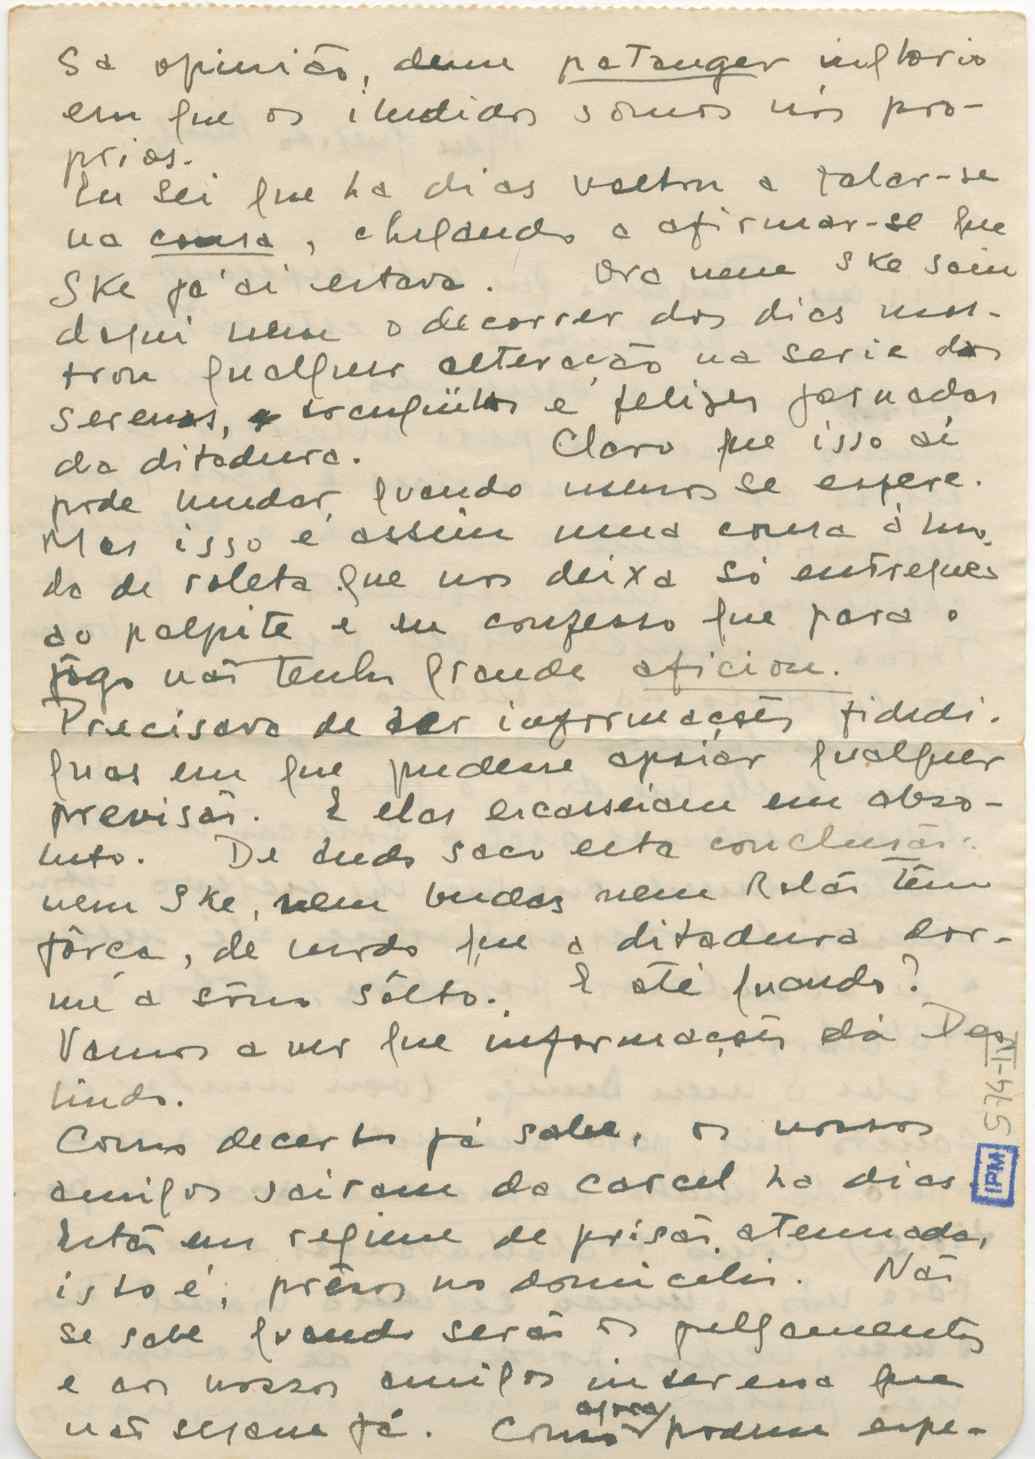 sa opinião, dum patanger inglorio
em que os iludidos somos nós pro-
prios.
Eu sei que ha dias voltou a falar-se
na cousa, chegando a afirmar-se que
Ske já aí estava. Ora nem Ske saiu
daqui nem o decorrer dos dias mos-
trou qualquer alteração na serie das
serenas, tranqüilas e felizes jornadas
da ditadura. Claro que isso aí
pode mudar quando menos se espere.
Mas isso é assim uma cousa á mo-
da de roleta que nos deixa só entregues
ao palpite e eu confesso que para o
jôgo não tenho grande aficion.
Precisava de ter informações fidedi-
gnas em que pudesse apoiar qualquer
previsão. E elas escasseiam em abso-
luto. De tudo saco esta conclusão:
nem Ske, nem budas nem Rolão têm
fôrça, de modo que a ditadura dor-
me a sôno sôlto. E até quando?
Vamos a ver que informações dá Des
lindo.
Como decerto já sabe, os nossos
amigos sairam da carcel ha dias.
Estão em regime de prisão atenuada,
isto é, prêsos no domicilio. Não
se sabe quando serão os julgamentos
e aos nossos amigos interessa que
não sejam já. Como agora podem espe-
574-IV
IPM